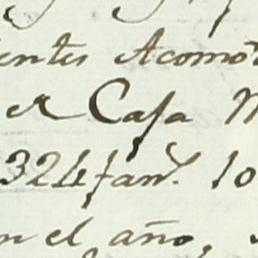 entes Acomo
er Casa
324 fan.s 10
n el año,